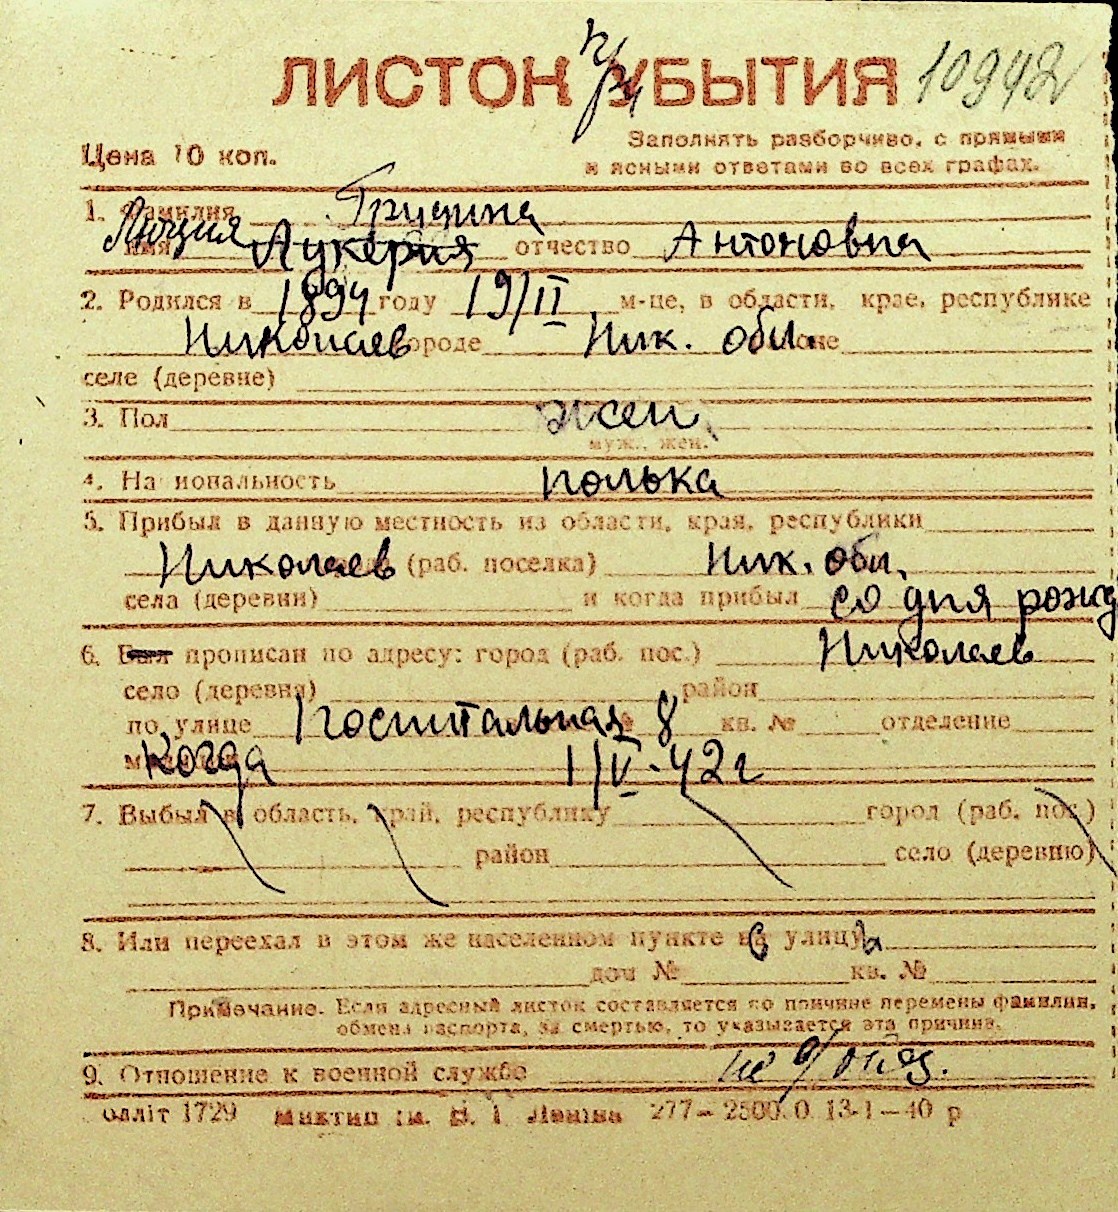 ЛИСТОК УБЫТИЯ 10942
Цена 10 коп.
Заполнять разборчиво, с прямыми
и ясными ответами во всех графах.
1. Фамилия Грудина
Люция имя Лукерия отчество Антоновна
2. Родился в 1894 году 19/II м-це, в области, крае, республике
Николаев городе Ник. обл.
селе (деревне)
3. Пол жен.
муж., жен.
4. Национальность полька
5. Прибыл в данную местность из области, края, республики
Николаев (раб. поселка) Ник. обл.
села (деревни) и когда прибыл со дня рожд
6. Был прописан по адресу: город (раб. пос.) Николаев
село (деревня) район
по улице Госпитальная № 8 кв. № отделение
Когда 1/V-42г
7. Выбыл в область, край, республику город (раб. пос.)
район село (деревню)
8. Или переехал в этом же населенном пункте на улицу
дом № кв. №
Примечание. Если адресный листок составляется по причине перемены фамилии,
обмена паспорта, за смертью, то указывается эта причина.
9. Отношение к военной службе не
Олліт 1729 Миктип ім. В. І. Леніна 277—2500.0 13-1—40 р